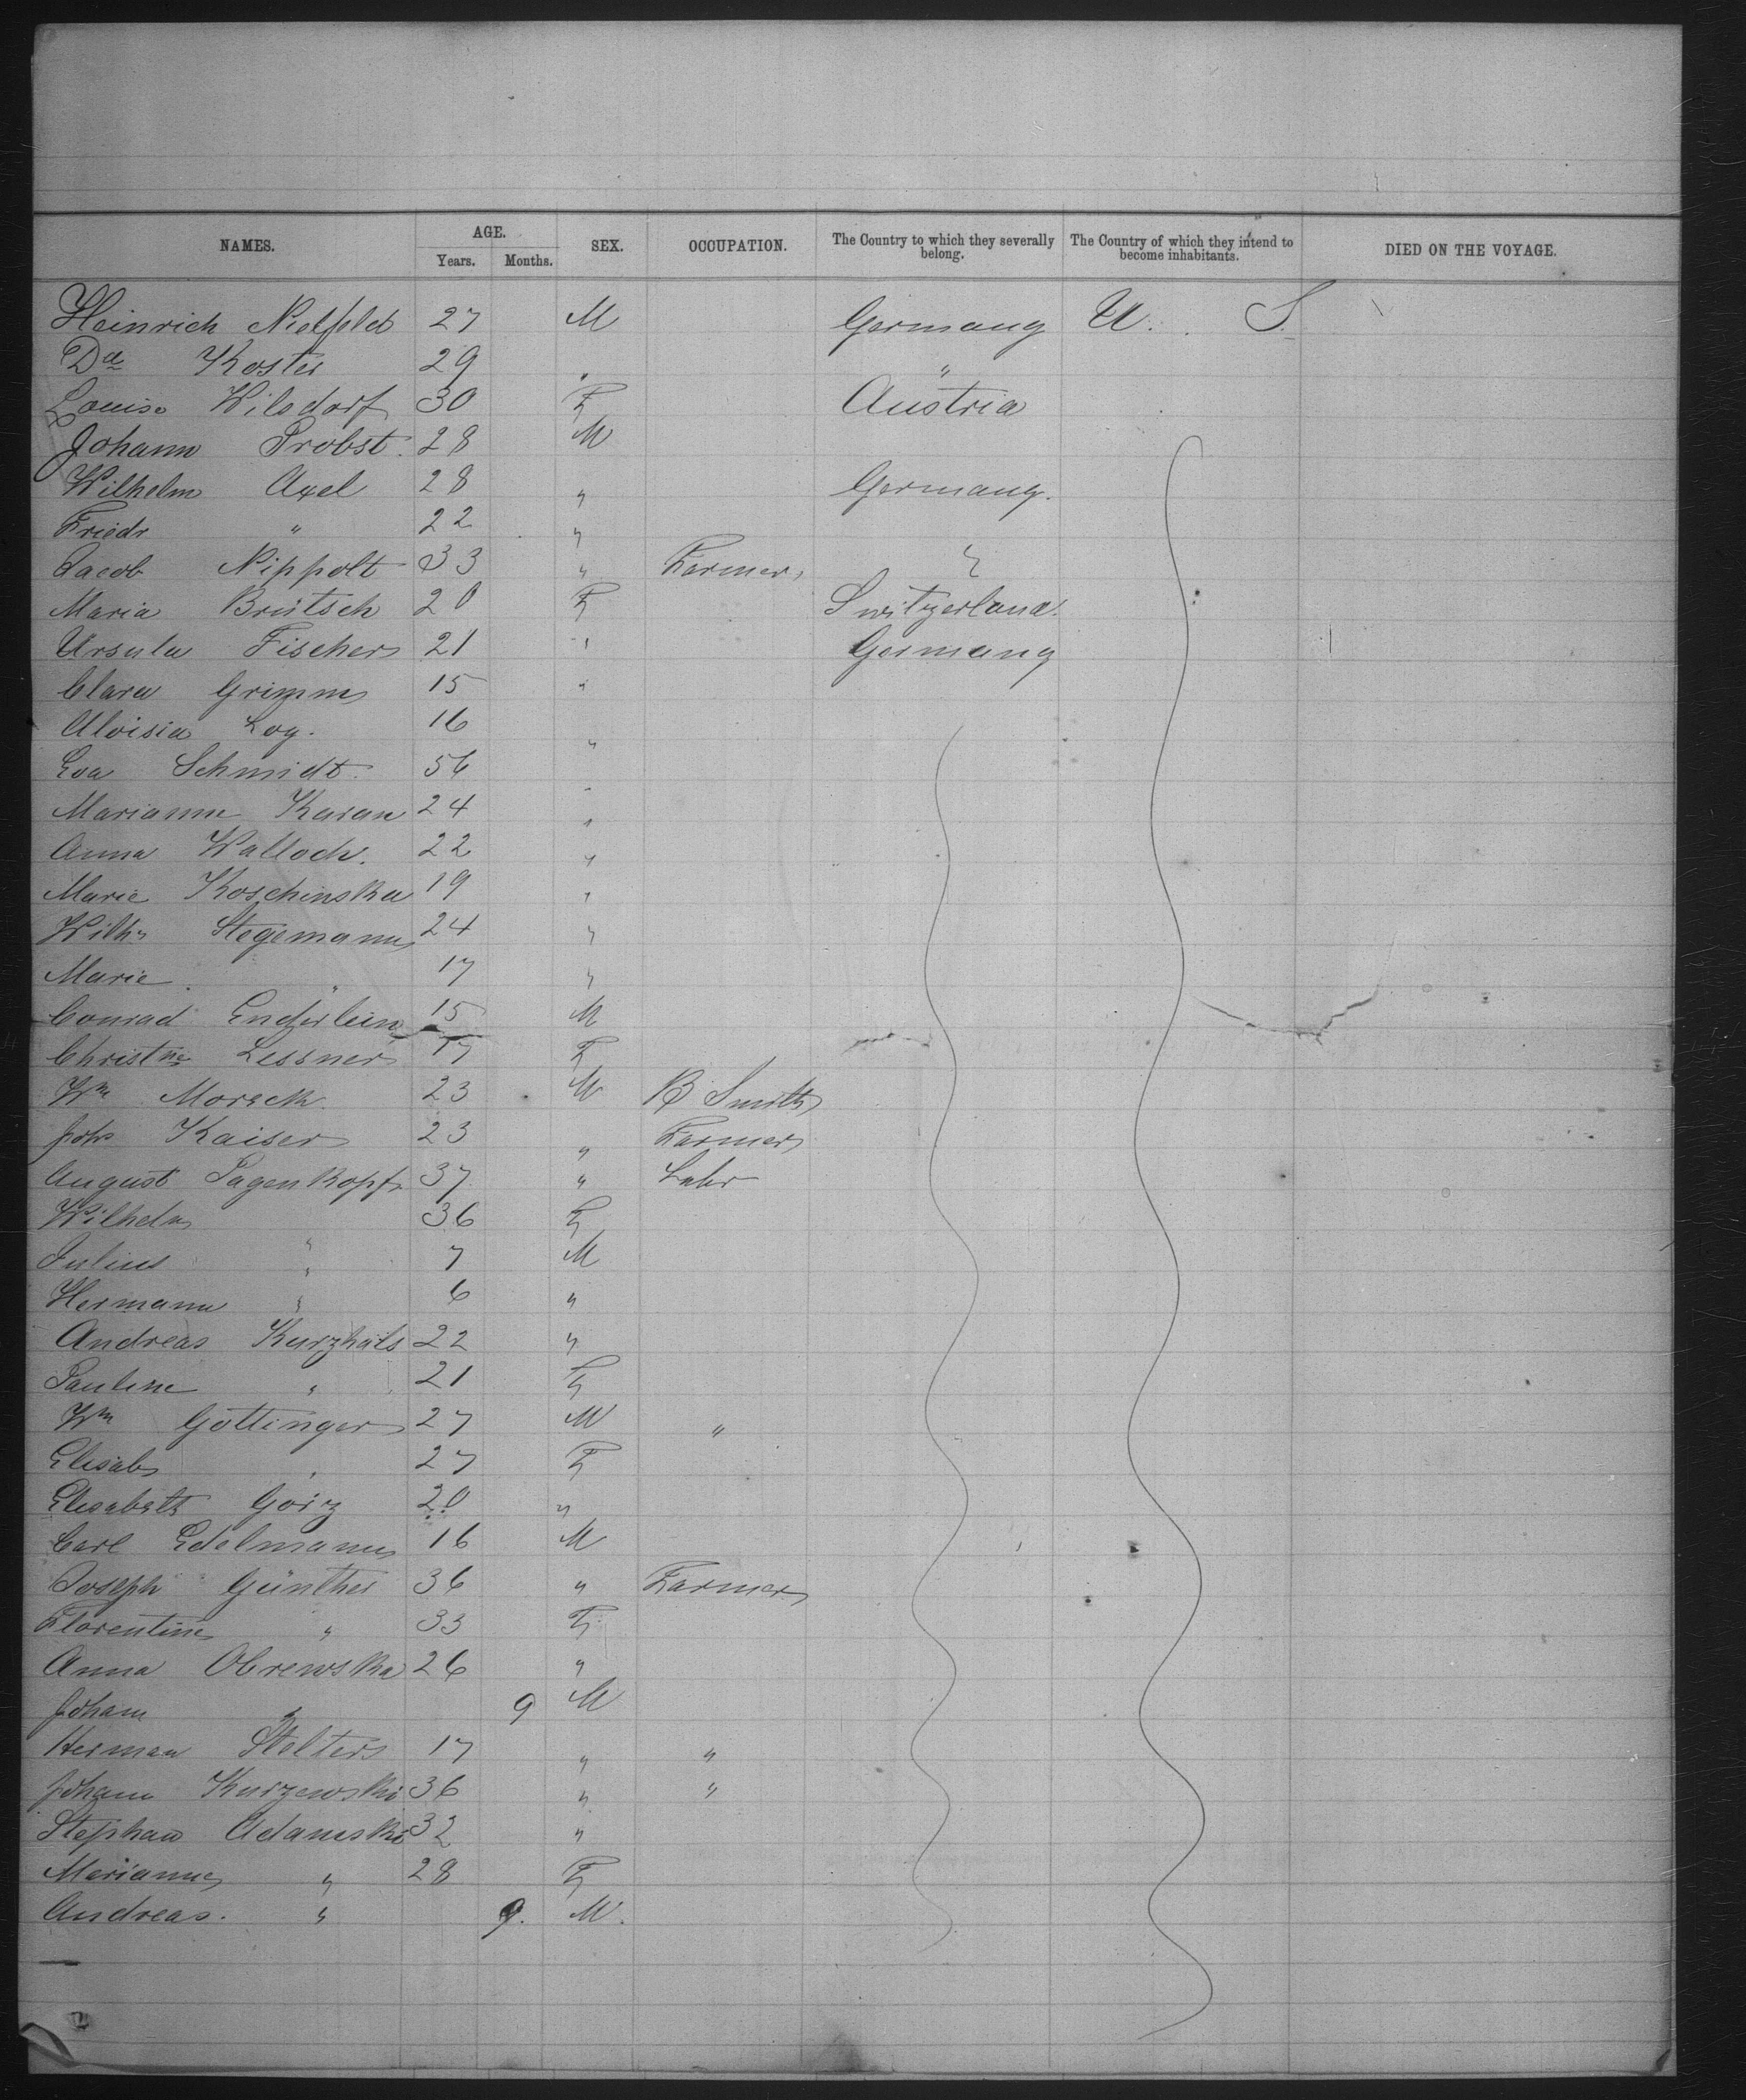 NAMES. AGE. SEX. OCCUPATION. The Country to which they severally belong. The Country of which they intend to become inhabitants. DIED ON THE VOYAGE.
Years. Months.
Heinrich Nietfeld 27 M Germany U. S.
Do Koster 29 " "
Louise Wilsdorf 30 F Austria
Johann Probst. 28 M
Wilhelm Axel 28 " Germany.
Friedr " 22 "
Jacob Nippolt 33 " Farmer "
Maria Brütsch 20 F Switzerland.
Ursula Fischer 21 " Germany
Clara Grimm 15 "
Aloisia Log. 16 "
Eva Schmidt. 56 "
Marianne Karan 24 "
Anna Walloch. 22 "
Marie Koschinska 19 "
Wilh. Stegemann 24 "
Marie. " 17 "
Conrad Enderlein 15 M
Christne Lessner 17 F
Wm 23 M B Smith
Johs Kaiser 23 " Farmer
August Pagenkopf 37 " Labr
Wilhelm " 36 F
Julius " 7 M
Hermann " 6 "
Andreas Kurzhals 22 "
Pauline " 21 F
Wm Göttinger 27 M "
Elisab " 27 F
Elisabeth Goirz 20 "
Carl Edelmann 16 M
Joseph Günther 36 " Farmer
Florentine " 33 F
Anna Obrewska 26 "
Johann " 9 M
Herman Stelter 17 " "
Johann Kurzewski 36 " "
Stephan Adamski 32 "
Marianne " 28 F
Andreas. " 9. M.